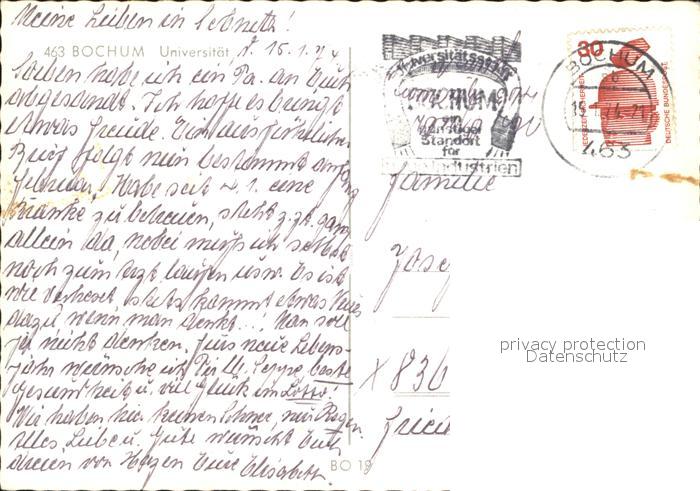 Meine Lieben in Sebnitz!
463 BOCHUM Universität d. 15.1.74
Soeben habe ich ein Pa. an Euch
abgesandt. Ich hoffe es bringt
etwas Freude. Den ausführlichen
Brief folgt nun bestimmt anfang
Februar. Habe seit 2.1. eine
Kranke zu betreuen, steht z.Zt. ganz
allein da, nebei muß ich selbst
noch zum Arzt laufen usw. Es ist
wie verhext stets kommt etwas Neues
dazu, wenn man denkt...! Man soll
ja nicht denken. Fürs neue Lebens-
jahr wünsche ich Dir lb. Seppe, beste
Gesundheit u. viel Glück im Lotto!
Wir haben hier keinen Schnee, nur Regen.
Alles Liebe u. Gute wünscht Euch
dreien von Herzen Eure Elisabeth.
BO 19
Universitätsstadt
BOCHUM
ein
günstiger
Standort
für
Industrien
BOCHUM
15.1.74-21
463
30
DEUTSCHE BUNDESPOST
Familie
Josef
X 836
privacy protection
Datenschutz